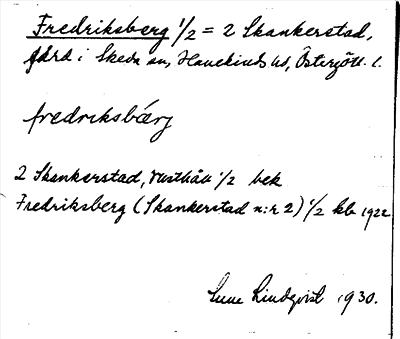 Fredriksberg 1/2 = 2 Skankerstad,
gård i Skeda sn, Hanekinds hd, Östergötl. l.
fredriksbärj
2 Skankerstad, Västhåll 1/2 bek
Fredriksberg (Skankerstad n:r 2) 1/2 kb 1922
Sune Lindqvist 1930.